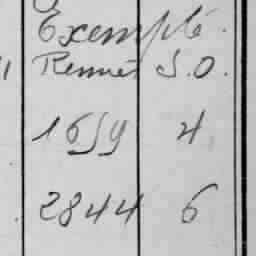 Exempté
Rennes S.O.
1659 4
2844 6